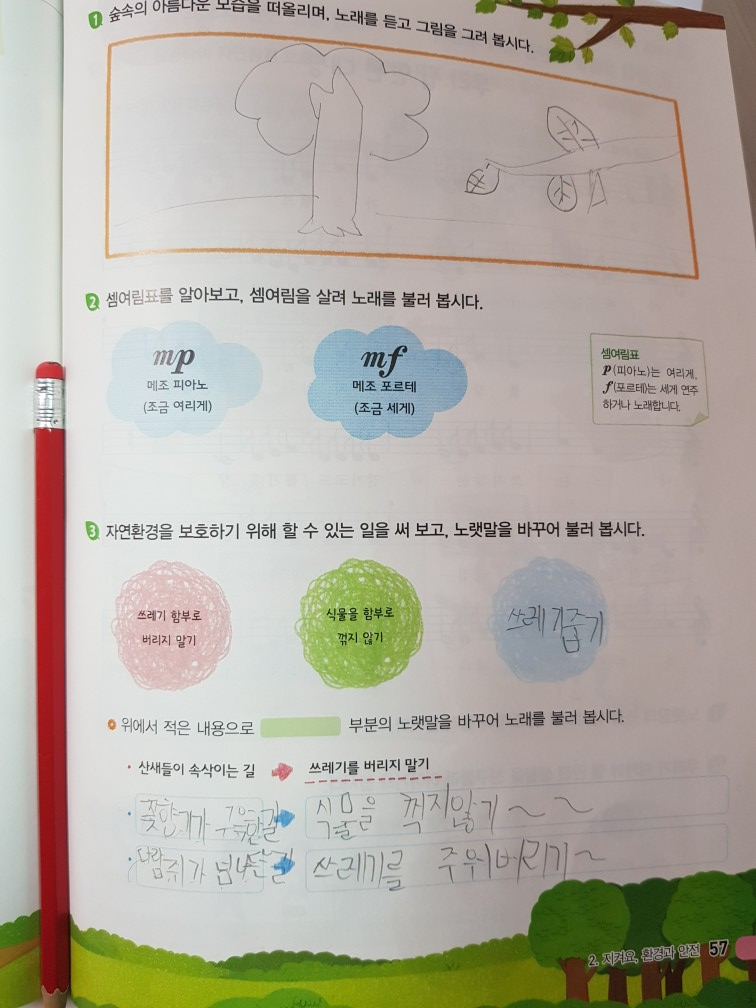 1 숲속의 아름다운 모습을 떠올리며, 노래를 듣고 그림을 그려 봅시다.
2 셈여림표를 알아보고, 셈여림을 살려 노래를 불러 봅시다.
mp
메조 피아노
(조금 여리게)
mf
메조 포르테
(조금 세게)
셈여림표
p(피아노)는 여리게,
f(포르테)는 세게 연주
하거나 노래합니다.
3 자연환경을 보호하기 위해 할 수 있는 일을 써 보고, 노랫말을 바꾸어 불러 봅시다.
쓰레기 함부로
버리지 말기
식물을 함부로
꺾지 않기
쓰레기줍기
위에서 적은 내용으로 부분의 노랫말을 바꾸어 노래를 불러 봅시다.
• 산새들이 속삭이는 길 쓰레기를 버리지 말기
• 꽃향기가 그윽한길 식물을 꺽지않기~~
• 다람쥐가 넘나드는길 쓰레기를 주워버리기~
2. 지켜요, 환경과 안전 57